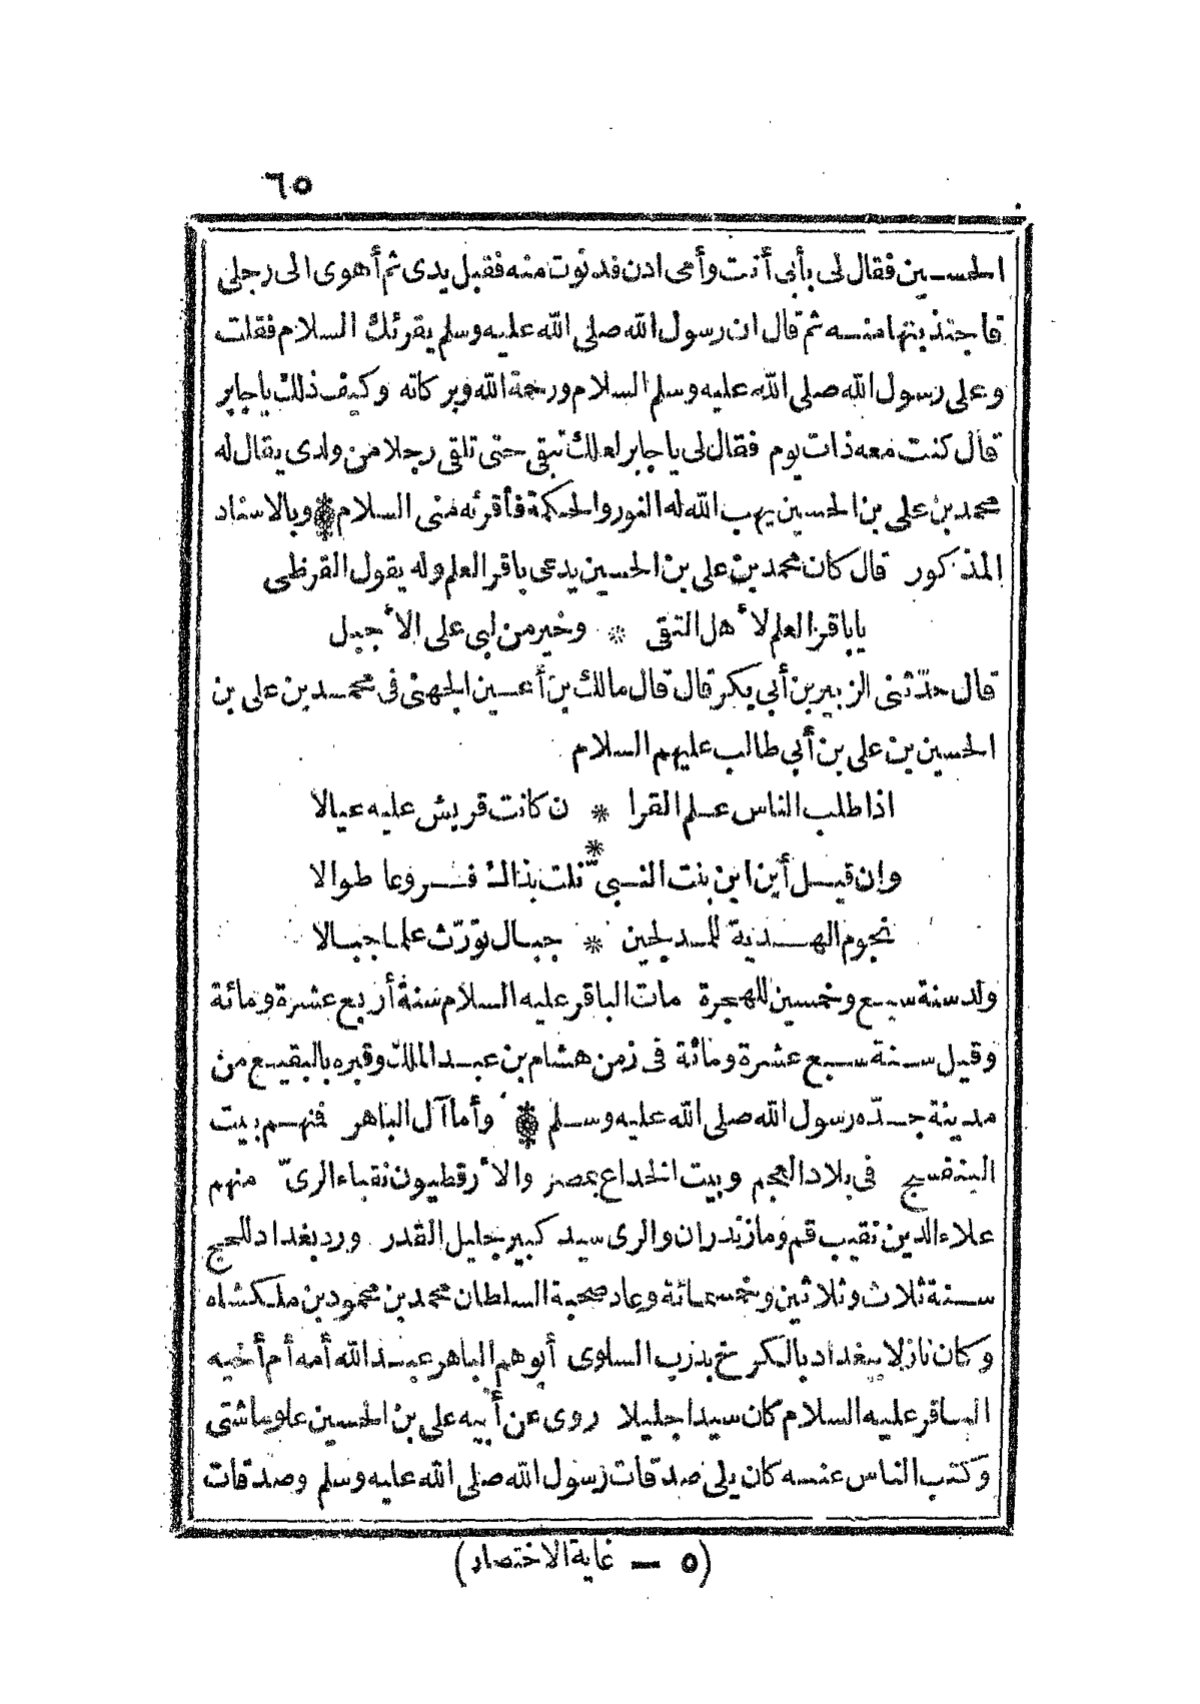 ٦٥
الحسين فقال لى بأبى أنت وأمى ادن فدنوت منه فقبل يدى ثم أهوى الى رجلى
فاجتذبتها منه ثم قال ان رسول الله صلى الله عليه وسلم يقرئك السلام فقلت
وعلى رسول الله صلى الله عليه وسلم السلام ورحمة الله وبركاته وكيف ذلك ياجابر
قال كنت معه ذات يوم فقال لى ياجابر لعلك تبقى حتى تلقى رجلا من ولدى يقال له
محمد بن على بن الحسين يهب الله له النور والحكمة فأقرئه منى السلام * وبالاسناد
المذكور قال كان محمد بن على بن الحسين يدعى باقر العلم وله يقول القرظى
ياباقر العلم لأهل التقى * وخير من لبى على الأجبل
قال حدّثنى الزبير بن أبي بكر قال قال مالك بن أعين الجهنى فى محمد بن على بن
الحسين بن على بن أبي طالب عليهم السلام
اذا طلب الناس علم القرا * ن كانت قريش عليه عيالا
وان قيل أين ابن بنت النبى * نلت بذاك فروعا طوالا
نجوم الهدية للمدلجين * جبال تورّث علما جبالا
ولد سنة سبع وخمسين للهجرة مات الباقر عليه السلام سنة أربع عشرة ومائة
وقيل سنة سبع عشرة ومائة فى زمن هشام بن عبد الملك وقبره بالبقيع من
مدينة جدّه رسول الله صلى الله عليه وسلم * وأما آل الباهر فنهم بيت
البنفسج فى بلاد العجم وبيت الخداع بمصر والأرقطيون نقباء الرىّ منهم
علاء الدين نقيب قم ومازندران والرى سيد كبير جليل القدر ورد بغداد للحج
سنة ثلاث وثلاثين وخمسمائة وعاد صحبة السلطان محمد بن محمود بن ملكشاه
وكان نازلا ببغداد بالكرخ بدرب السلوى أبوهم الباهر عبد الله أمه أم أخيه
الباقر عليه السلام كان سيدا جليلا روى عن أبيه على بن الحسين علوما شتى
وكتب الناس عنه كان يلى صدقات رسول الله صلى الله عليه وسلم وصدقات
(٥ — غاية الاختصار)